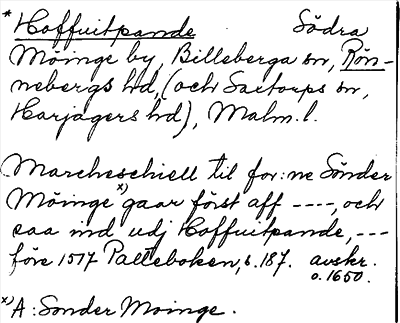 * Hoffuitpande Södra
Möinge by, Billeberga sn, Rön-
nebergs hd, (och Saxtorps sn,
Harjagers hd), Malm.l.
Marcheschiell til for:ne Sönder
Möinge x) gaar först aff ----, och
saa ind udj Hoffuitpande, ---
före 1517 Palteboken, s. 187. avskr.
o. 1650.
x) A: Sonder Moinge.